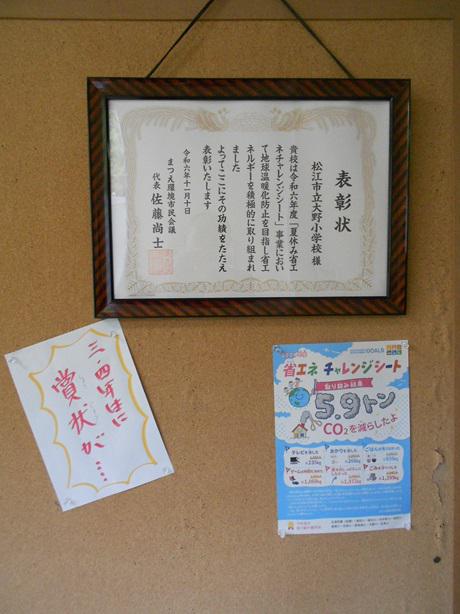 表彰状
松江市立大野小学校 様
貴校は令和六年度「夏休み省エ
ネチャレンジシート」事業におい
て地球温暖化防止を目指し省エ
ネルギーを積極的に取り組まれ
ました
よってここにその功績をたたえ
表彰いたします
令和六年十一月十日
まつえ環境市民会議
代表 佐藤尚士
三、四年生に
賞状が……
省エネ チャレンジシート
取り組み結果
5.9トン
CO₂を減らしたよ